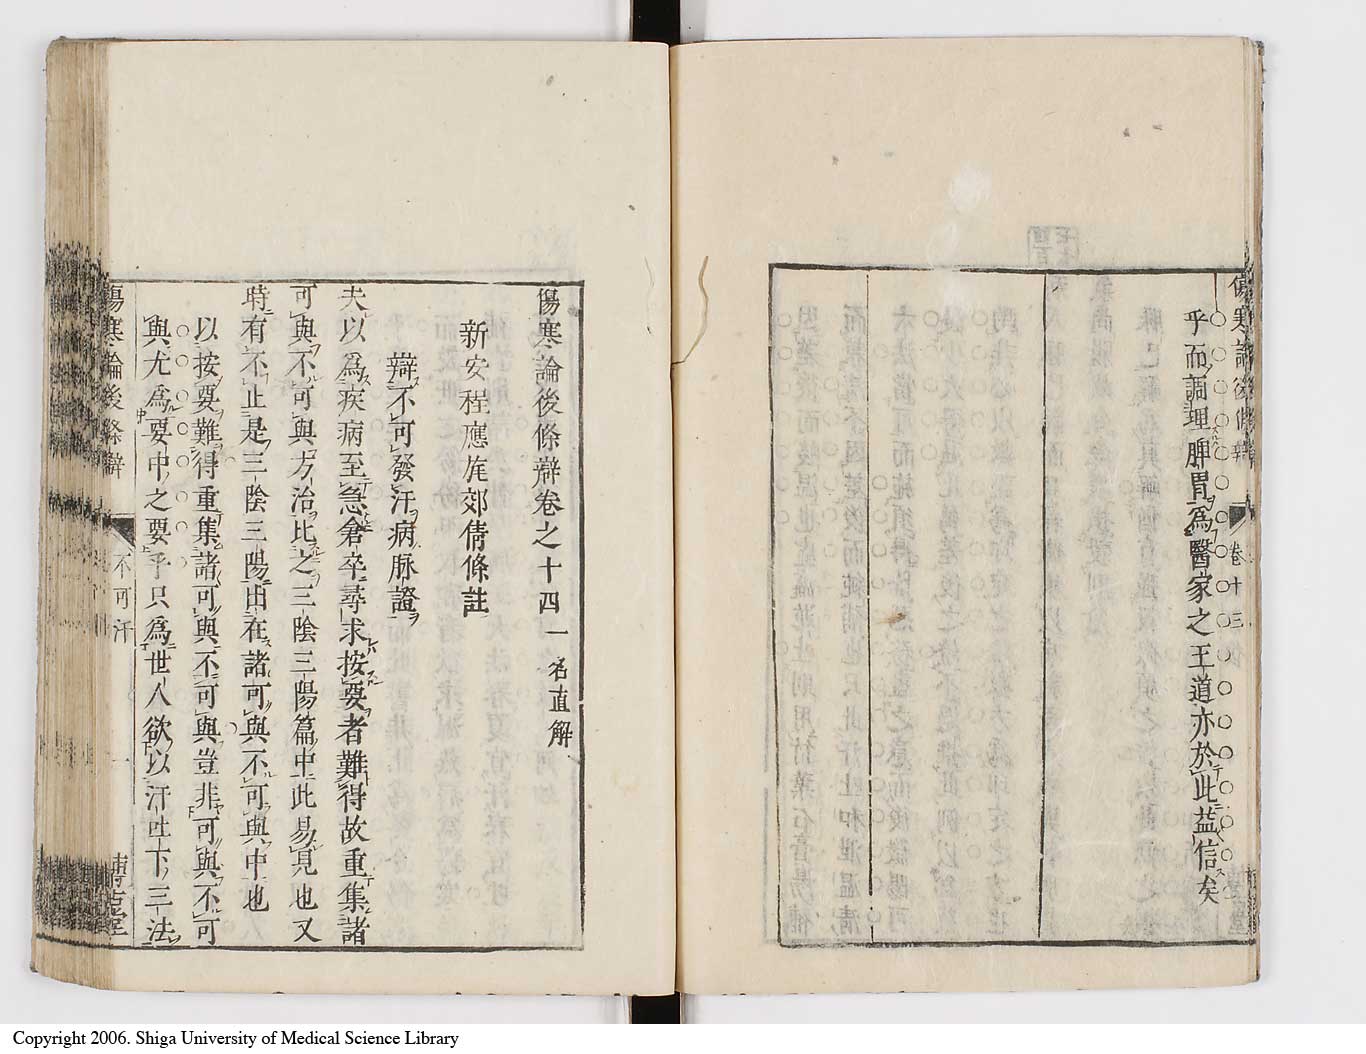 傷寒論後條辨
卷十三
乎而調理脾胃爲醫家之王道亦於此益信矣
傷寒論後條辯卷之十四 一名直解
新安程應旄郊倩條註
辯不可發汗病脉證
夫以爲疾病至急倉卒尋求按要者難得故重集諸
可與不可與方治比之三陰三陽篇中此易見也又
時有不止是三陰三陽由在諸可與不可與中也
以按要難得重集諸可與不可與豈非可與不可
與尤爲要中之要乎只爲世人欲以汗吐下三法
傷寒論後條辯
不可汗
一
博古堂
Copyright 2006. Shiga University of Medical Science Library